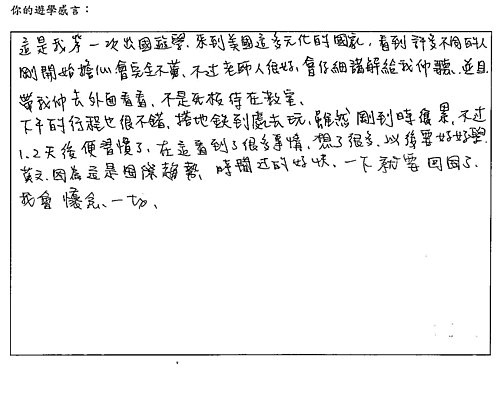 你的遊學感言：
這是我第一次出國遊學，來到美國這多元化的國家，看到許多不同的人
剛開始擔心會完全不懂，不过老師人很好，會仔細講解給我们聽，並且
帶我们去外面看看，不是死板待在教室。
下午的行程也很不錯，搭地鉄到處去玩，雖然剛到時很累，不过
1、2天後便習慣了，在這看到了很多事情，想了很多，以後要好好學
英文，因為這是國際趨勢，時間过的好快，一下就要回国了，
我會懷念一切，